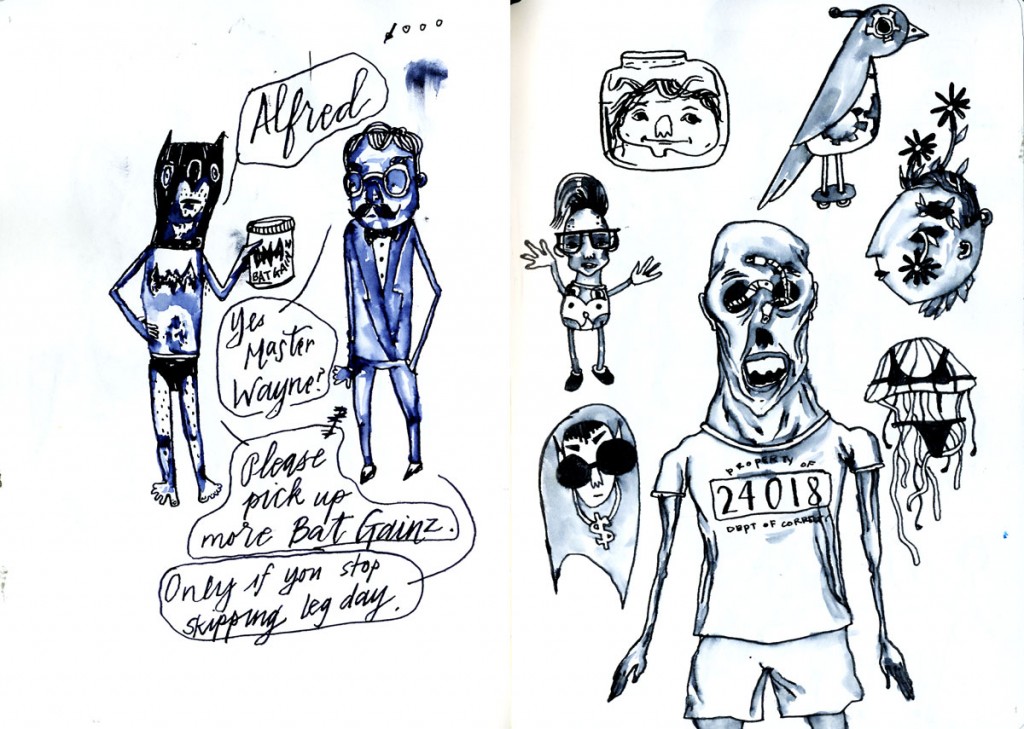 Alfred
BAT GAINZ
Yes
Master
Wayne?
Please
pick up
more Bat Gainz.
Only if you stop
skipping leg day.
$
PROPERTY OF
24018
DEPT OF CORRECT